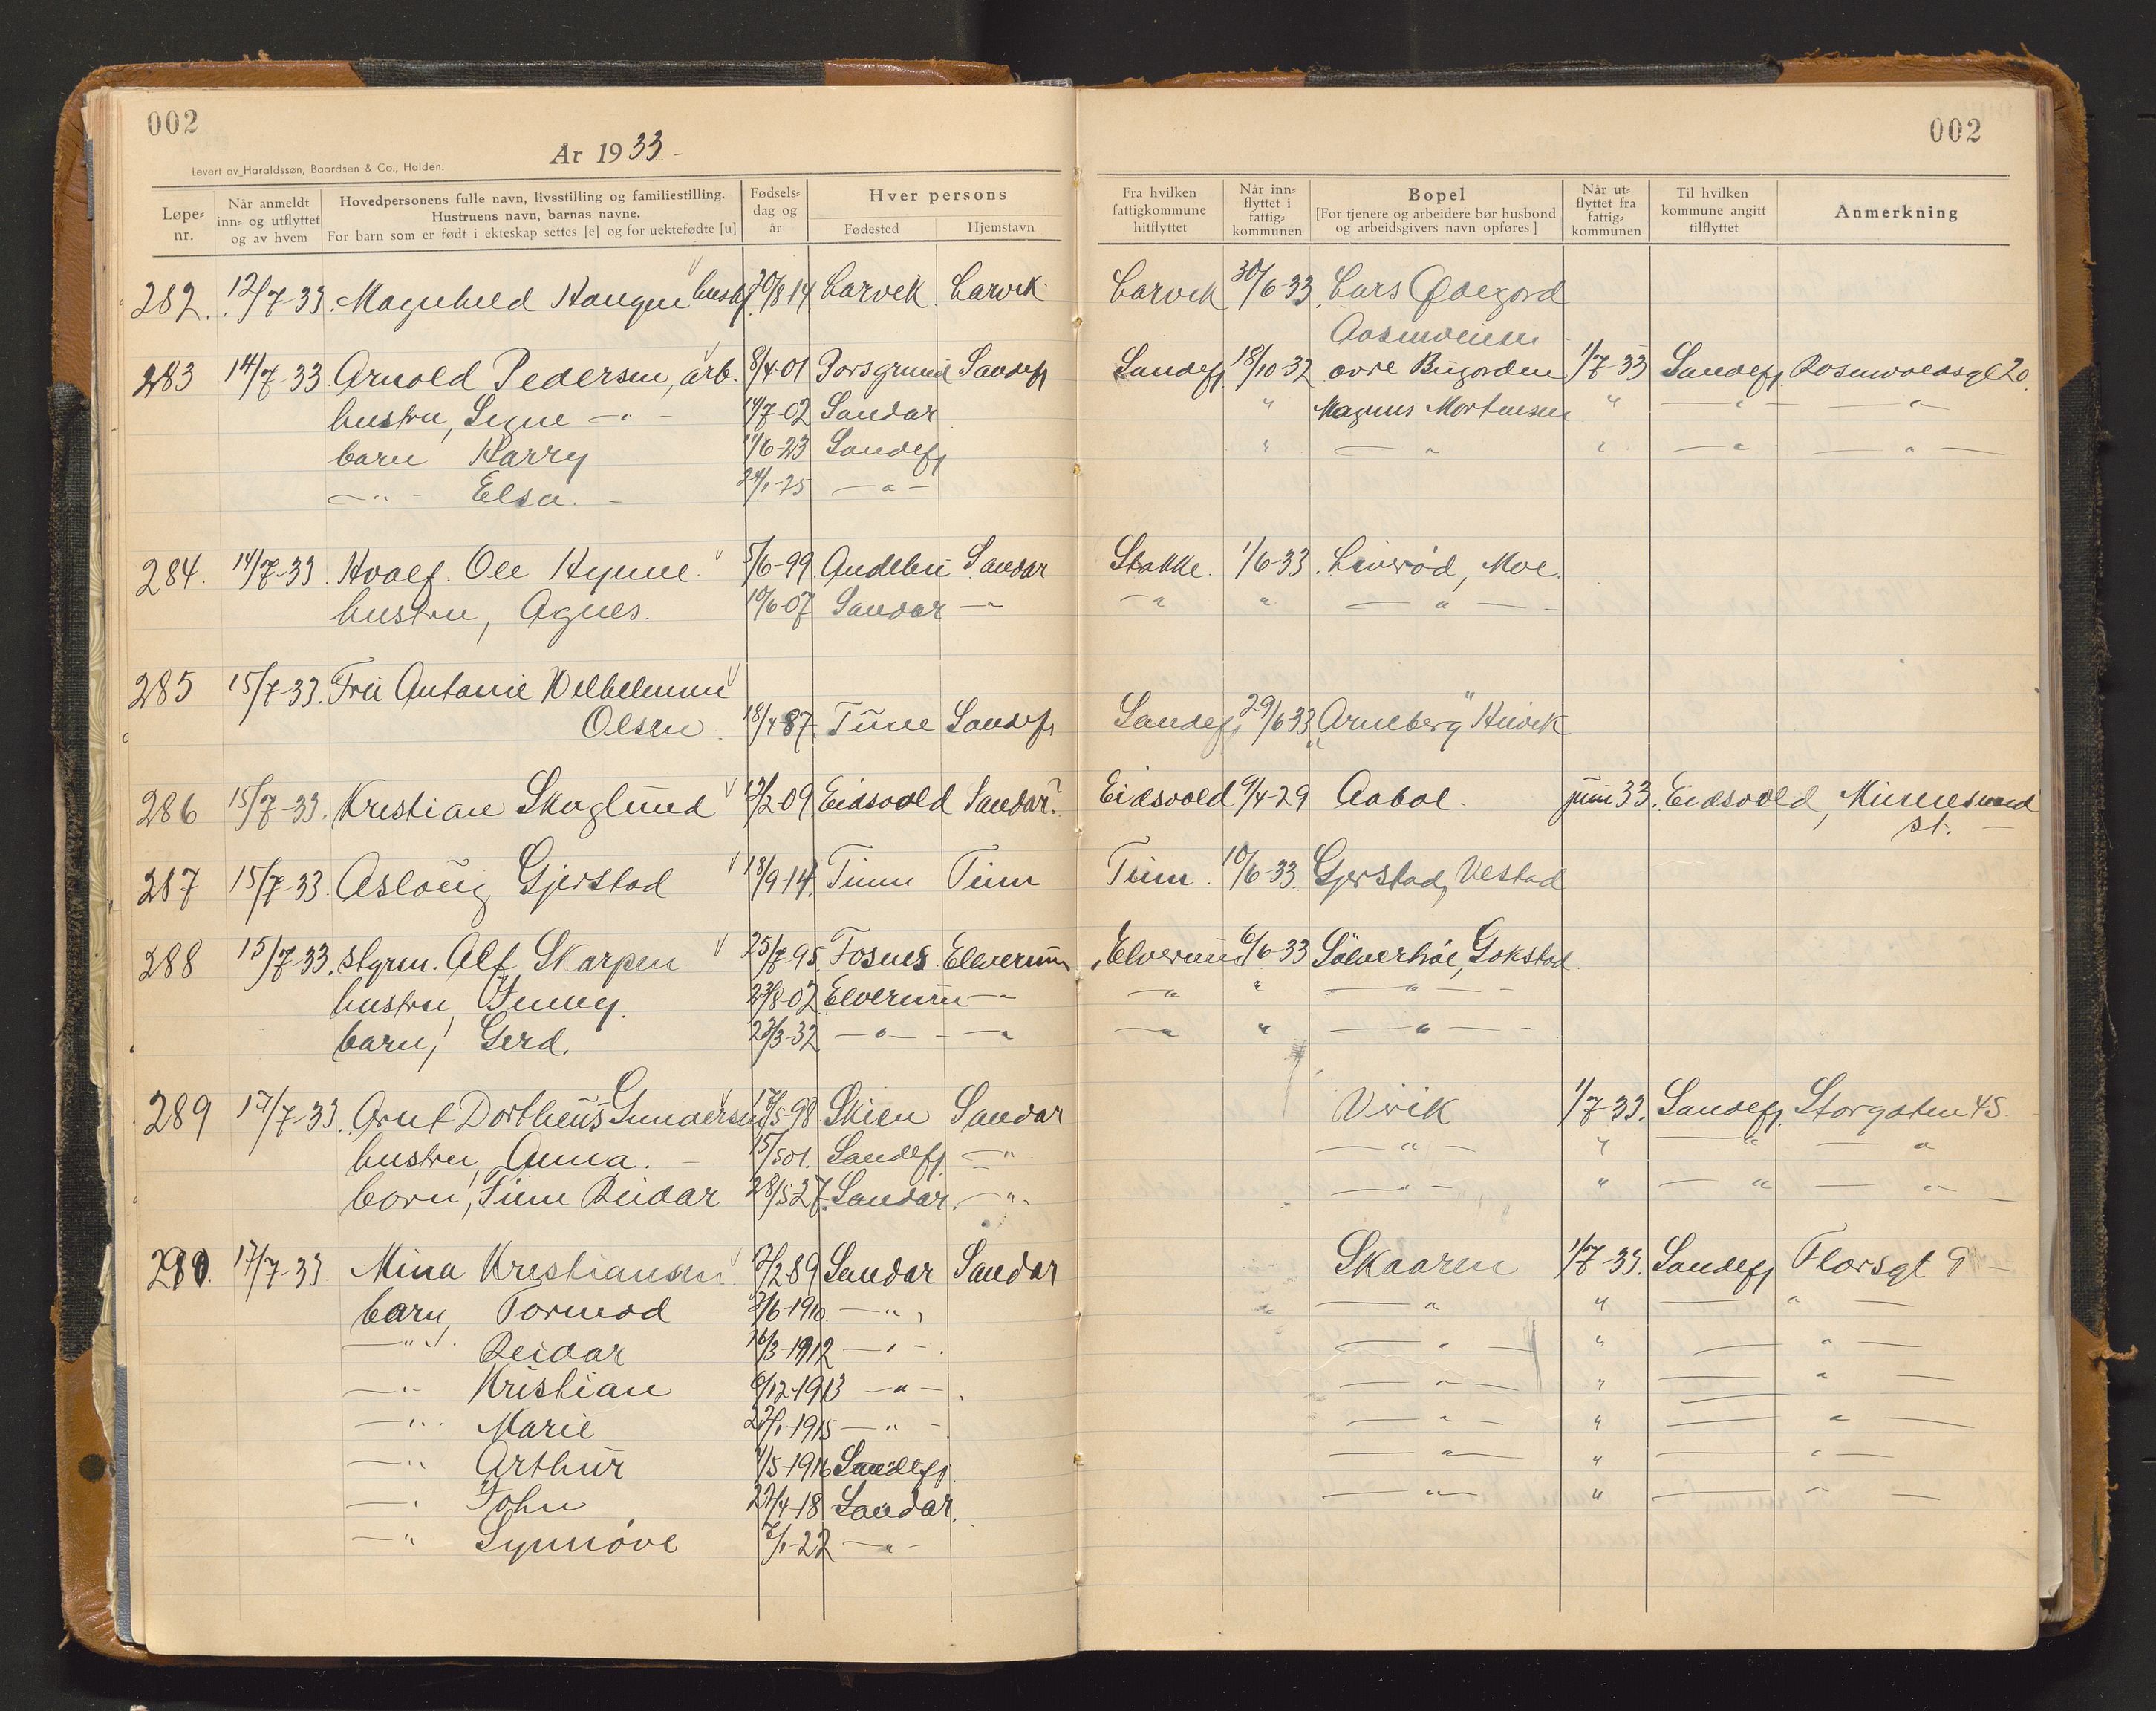 002
002
År 1933 -
Levert av Haraldssøn, Baardsen & Co., Halden.
Løpe-nr.
Når anmeldt inn- og utflyttet og av hvem
Hovedpersonens fulle navn, livsstilling og familiestilling.
Hustruens navn, barnas navne.
For barn som er født i ekteskap settes [e] og for uektefødte [u]
Fødsels-dag og år
Hver persons
Fødested
Hjemstavn
Fra hvilken fattigkommune hitflyttet
Når inn-flyttet i fattig-kommunen
Bopel
[For tjenere og arbeidere bør husbond og arbeidsgivers navn opføres]
Når ut-flyttet fra fattig-kommunen
Til hvilken kommune angitt tilflyttet
Anmerkning
282. 12/7-33. Magnhild Haugen 20/8-14 Larvik. Larvik. Larvik 30/6-33. Lars Ødegård
283 14/7-33 Arnold Pedersen, arb. 8/4-01 Porsgrund Sandefj Sandefj. 18/10-32 øvre Bugården 1/7-33 Sandefj.
hustru, Signe -"- 14/7-02 Sandar " Magnus Mortensen " -"- -"-
barn Harry 11/6-23 Sandefj " -"- " -"- -"-
-"- Elsa. - 24/1-25 -"-
284. 14/7-33. Hvalf. Ole Hynne 5/6-99. Andebu Sandar Stokke. 1/6-33. Liverød, Moe.
hustru, Agnes. 10/6-07 Sandar -"- -"- " -"-
285 15/7-33. Fru Antonie Wilhelmine
Olsen. 18/4 87. Tune Sandefj Sandefj 29/6 33 "Arneberg" Huvik
286 15/7-33. Kristian Skoglund 12/2-09 Eidsvold Sandar? Eidsvold 9/4-29 Aabol. juni 33. Eidsvold, Minnesund
st. -
287 15/7-33. Aslaug Gjerstad 18/9-14. Tinn Tinn Tinn. 10/6-33. Gjerstad, Vestad
288 15/7-33. styrm. Alf Skarpen 25/7-95. Fosnes Elverum Elverum 6/6-33 Sølverhøi, Gokstad.
hustru, Jenny. 23/8-02 Elverum -"- -"- " -"-
barn, Gerd. 23/3-32 -"- -"- -"- " -"-
289 17/7-33. Arnt Dortheus Gundersen 17/5-98 Skien Sandar Virik 1/7-33. Sandefj. Storgaten 45.
hustru, Anna. - 15/5 01. Sandefj. -"- -"- " -"- -"-
barn, Finn Reidar 28/5 27. Sandar. -"- -"- " -"- -"-
290. 17/7-33. Mina Kristiansen. 12/2 89 Sandar Sandar Skaaren 1/7-33. Sandefj Florsgt 9 -
barn, Tormod 2/6-1910. -"- -"- " -"-
-"- Reidar 16/3-1912 -"- -"- " -"-
-"- Kristian 6/12-1913 -"- -"- " -"-
-"- Marie 27/1-1915 -"- -"- " -"-
-"- Arthur 1/5-1916 Sandefj. -"- " -"-
-"- John 27/4-18 Sandar. -"- " -"-
-"- Synnøve 7/1-22 -"-